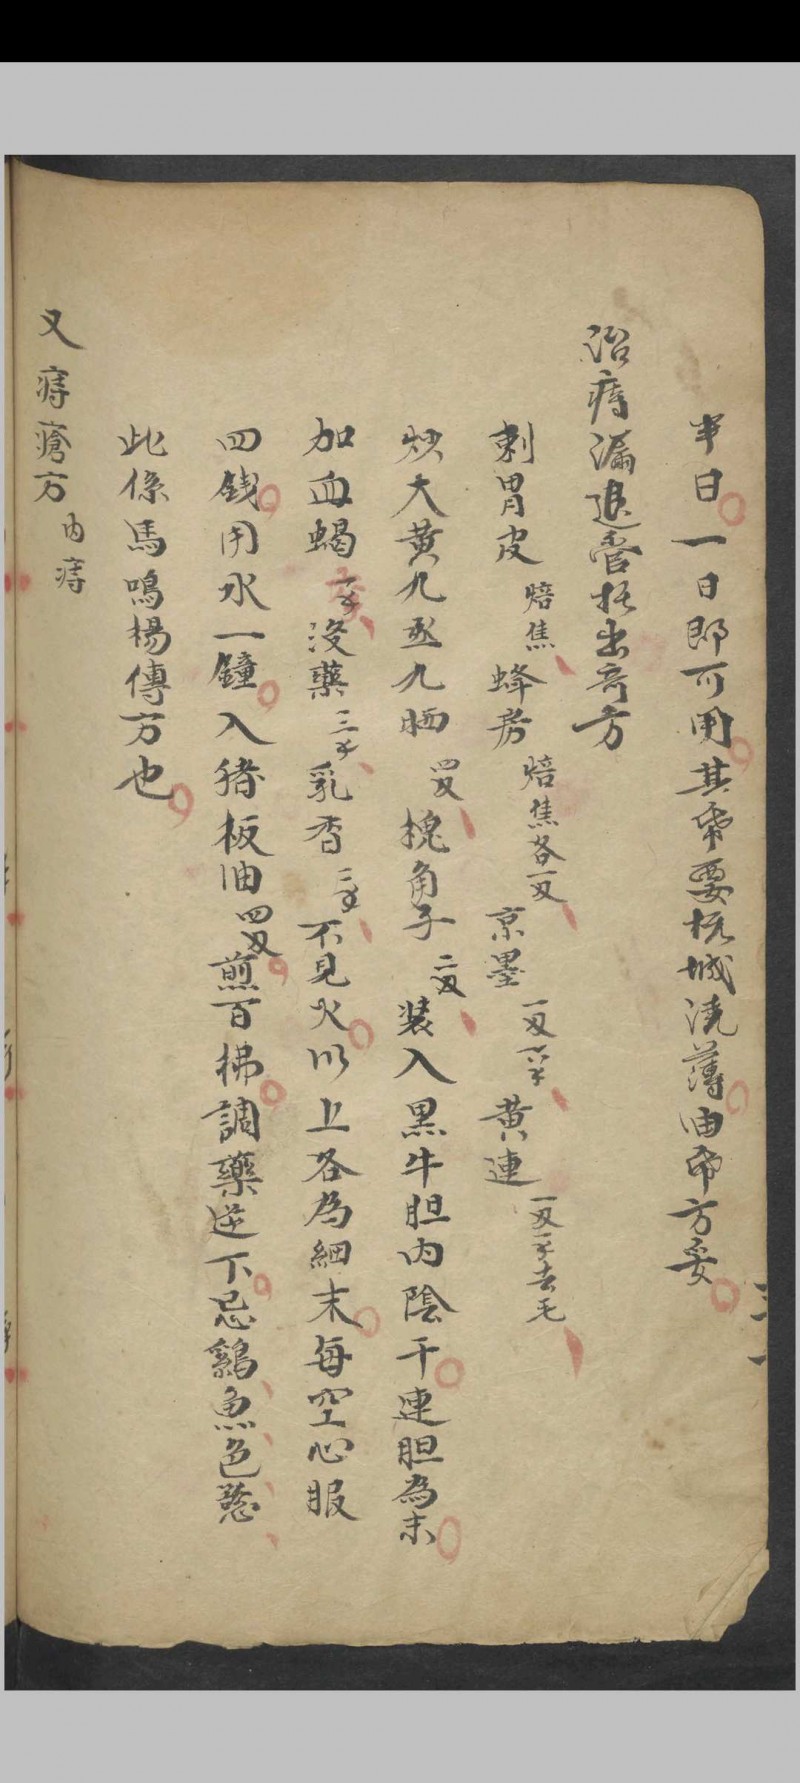 半日一日即可用其帋要桄城澆薄油帋方妥
治痔漏退管托出奇方
刺胃皮焙焦蜂房焙焦各一两京墨一两半黄連一两去毛
炒大黄九蒸九晒四两槐角子二两装入黑牛胆内陰干連胆為末
加血蝎没藥三乳香二不見火以上各為細末每空心服
四錢用水一鐘入猪板油四两煎百拂調藥送下忌鷄魚色慾
此係馬鳴楊傳方也
又痔瘡方内痔